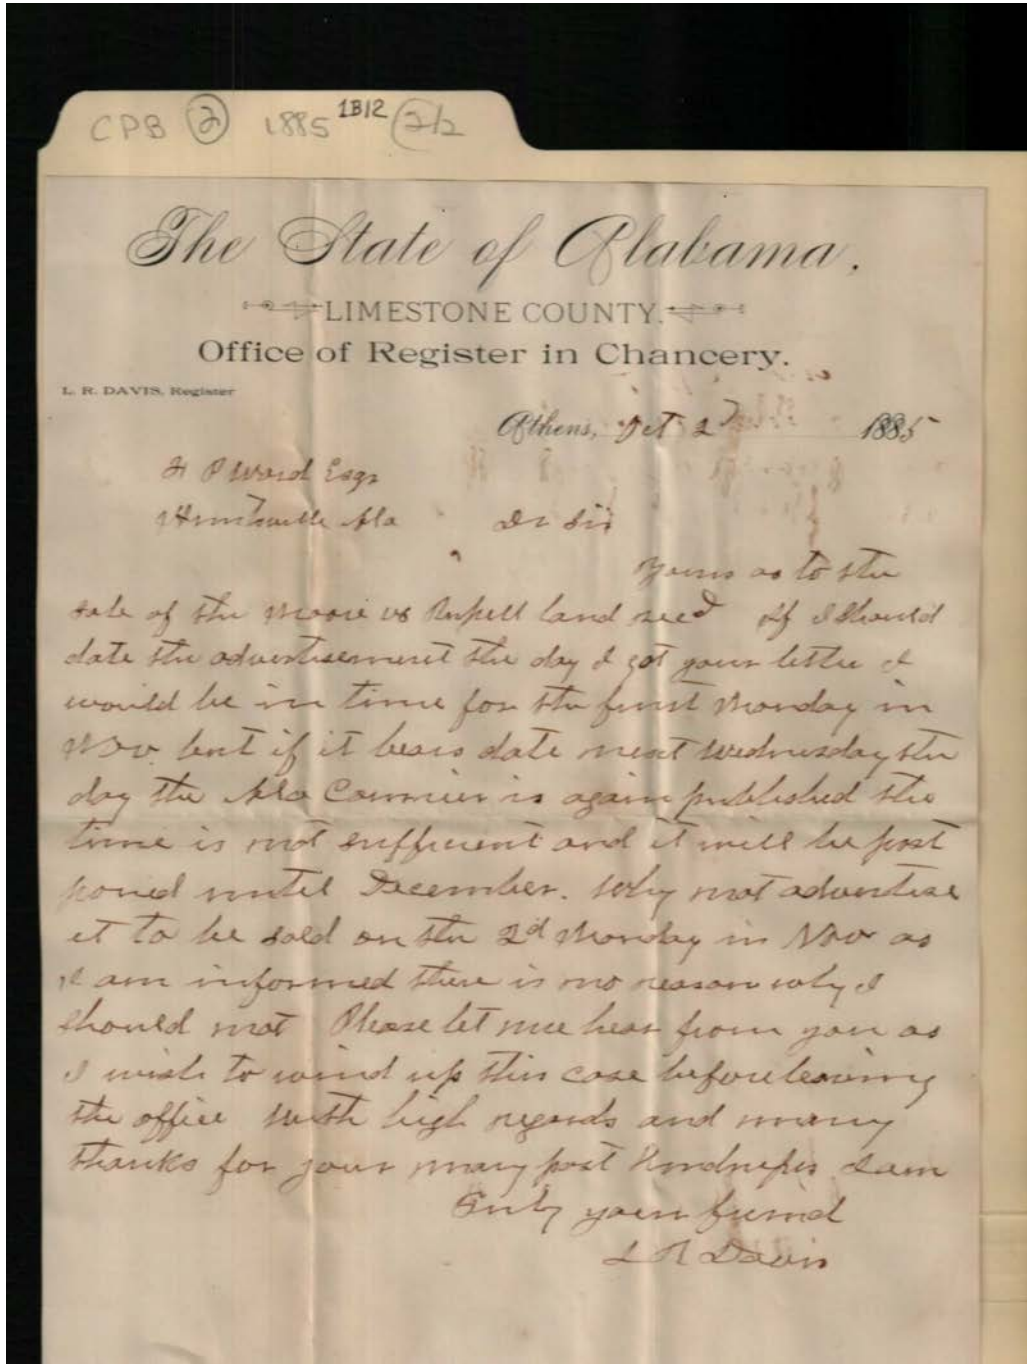 CPB 2 1885 1B12 2/2
The State of Alabama.
LIMESTONE COUNTY.
Office of Register in Chancery.
L. R. DAVIS, Register
Athens, Oct 2d 1885
H P Ward Esqr
Huntsville Ala Dr Sir
Yours as to the
sale of the Moore vs Russell land recd If I should
date the advertisement the day I got your letter I
would be in time for the first Monday in
Nov but if it bears date next Wednesday the
day the Ala Courier is again published the
time is not sufficient and it will be post
poned until December. Why not advertise
it to be sold on the 2d Monday in Nov as
I am informed there is no reason why I
should not Please let me hear from you as
I wish to wind up this case before leaving
the office With high regards and many
thanks for your many past kindnesses I am
Truly your friend
L R Davis